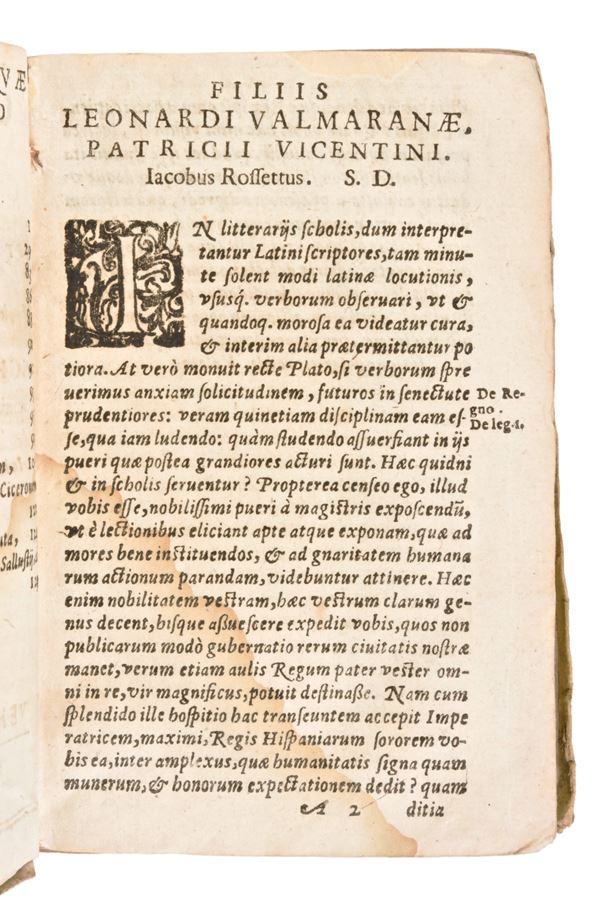 FILIIS
LEONARDI VALMARANÆ,
PATRICII VICENTINI.
Iacobus Roſſettus. S. D.
IN litterarijs ſcholis, dum interpre-
tantur Latini ſcriptores, tam minu-
te ſolent modi latinæ locutionis,
vſusq́. verborum obſeruari, vt &
quandoq. moroſa ea videatur cura,
& interim alia prætermittantur po
tiora. At verò monuit recte Plato, ſi verborum ſpre
uerimus anxiam ſolicitudinem, futuros in ſenectute
De Re-
prudentiores: veram quinetiam diſciplinam eam eſ-
gno.
De leg.1.
ſe, qua iam ludendo: quàm ſtudendo aſſuerfiant in ijs
pueri quæ poſtea grandiores acturi ſunt. Hæc quidni
& in ſcholis ſeruentur? Propterea cenſeo ego, illud
vobis eſſe, nobiliſſimi pueri à magiſtris expoſcendũ,
vt è lectionibus eliciant apte atque exponam, quæ ad
mores bene inſtituendos, & ad gnaritatem humana
rum actionum parandam, videbuntur attinere. Hæc
enim nobilitatem veſtram, hæc veſtrum clarum ge-
nus decent, hiſque aßueſcere expedit vobis, quos non
publicarum modò gubernatio rerum ciuitatis noſtræ
manet, verum etiam aulis Regum pater veſter om-
ni in re, vir magnificus, potuit deſtinaße. Nam cum
ſplendido ille hoſpitio hac tranſeuntem accepit Impe
ratricem, maximi, Regis Hiſpaniarum ſororem vo-
bis ea, inter amplexus, quæ humanitatis ſigna quam
munerum, & honorum expectationem dedit? quam
A 2 ditia